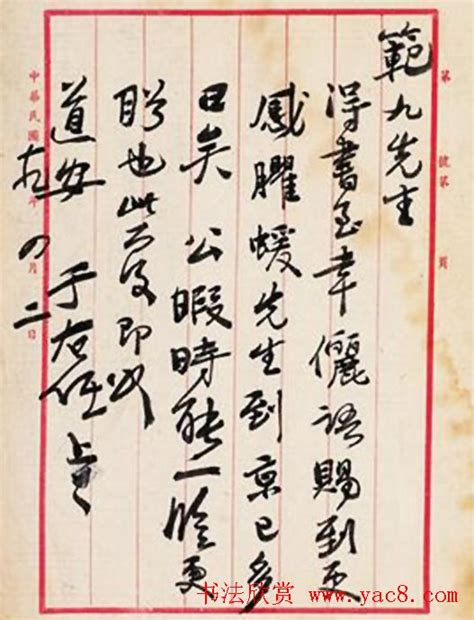 第 號第 頁
範九先生
得書至幸儷語賜到更
感臞蝯先生到京已多
日矣 公暇時能一臨更
盼也此復即頌
道安 于右任 上
中華民國 年四月二日
书法欣赏 www.yac8.com